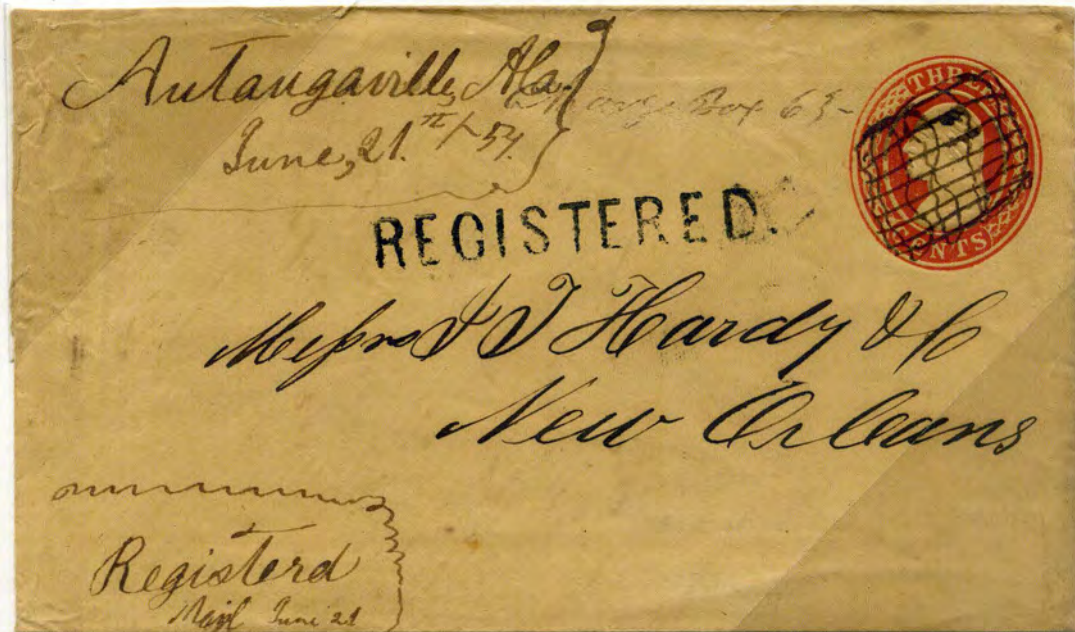 Autaugaville, Ala
June, 21.st / 57.
Box 63
THREE
CENTS
REGISTERED.
Messrs J J Hardy & Co
New Orleans
Registerd
Mail June 21